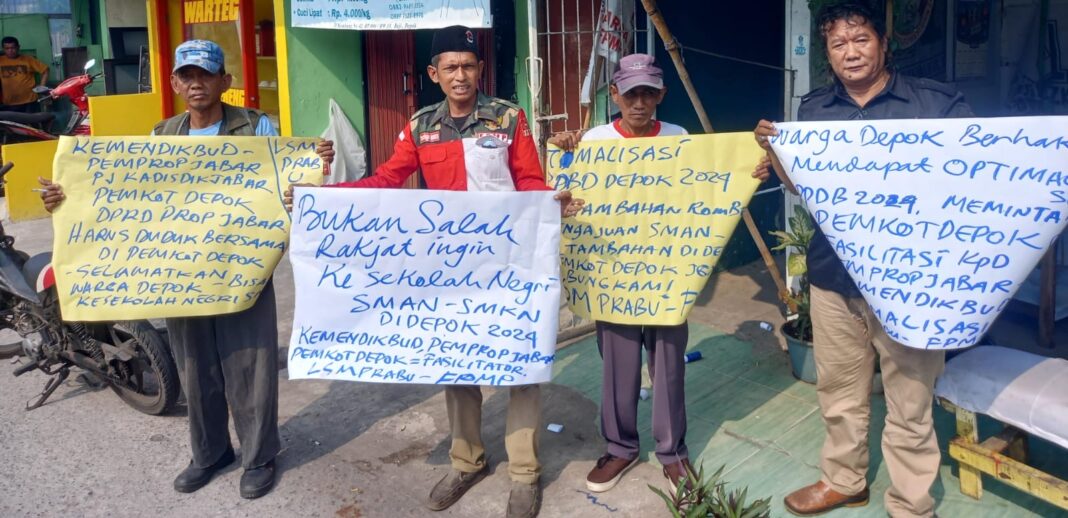 WARTEG
Cuci Lipat
Rp. 4.000/kg
KEMENDIKBUD -
PEMPROP JABAR
PJ KADISDIK JABAR
PEMKOT DEPOK
DPRD PROP JABAR
HARUS DUDUK BERSAMA
DI PEMKOT DEPOK
- SELAMATKAN -
WARGA DEPOK - BISA
KESEKOLAH NEGRI
LSM
PRAB
U
Bukan Salah
Rakjat ingin
Ke sekolah Negri
SMAN - SMKN
DI DEPOK 2024
KEMENDIKBUD, PEMPROP JABAR
PEMKOT DEPOK = FASILITATOR.
LSM PRABU - FPMP
MALISASI
DEPOK 2024
AMBAHAN ROMB
AJUAN SMAN -
TAMBAHAN DI DE
MKOT DEPOK JE
BUNGKAM!
M PRABU - F
WARGA DEPOK BERHAK
Mendapat OPTIMA
PDB 2024, MEMINTA
PEMKOT DEPOK
FASILITASI KPD
EMPROP JABAR
EMENDIKBU
MALISASI
- FPM